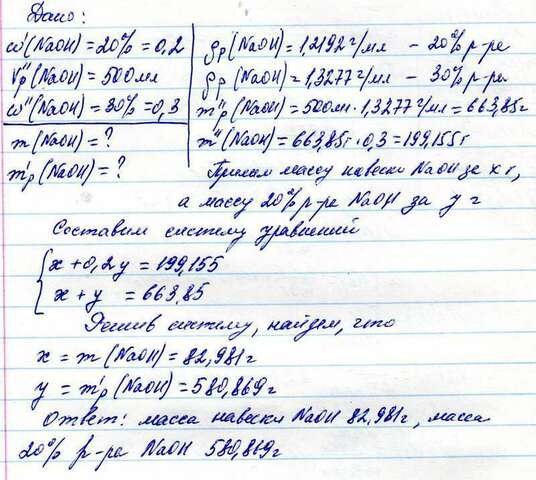 Дано:
ω'(NaOH) = 20% = 0,2
V"р(NaOH) = 500мл
ω"(NaOH) = 30% = 0,3
m(NaOH) = ?
mр(NaOH) = ?
ρр(NaOH) = 1,2192 г/мл – 20% р-ра
ρр(NaOH) = 1,3277 г/мл – 30% р-ра
m"р(NaOH) = 500мл · 1,3277 г/мл = 663,85г
m"(NaOH) = 663,85г · 0,3 = 199,155 г
Примем массу навески NaOH за x г,
а массу 20% р-ра NaOH за y г
Составим систему уравнений
x + 0,2y = 199,155
x + y = 663,85
Решив систему, найдем, что
x = m(NaOH) = 82,981 г
y = m'р(NaOH) = 580,869 г
Ответ: масса навески NaOH 82,981г, масса
20% р-ра NaOH 580,869г